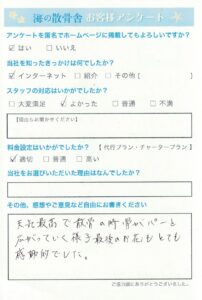 海の散骨舎 お客様アンケート
アンケートを匿名でホームページに掲載してもよろしいですか?
☑ はい □ いいえ
当社を知ったきっかけは何でしたか?
☑ インターネット □ 紹介 □ その他 [ ]
スタッフの対応はいかがでしたか?
□ 大変満足 ☑ よかった □ 普通 □ 不満
【理由もお聞かせください】
料金設定はいかがでしたか? 【 代行プラン・チャータープラン 】
☑ 適切 □ 普通 □ 高い
当社をお選びいただいた理由はなんでしたか?
その他、感想やご意見など自由にお書きください
天気最高で散骨の時骨がパーと
広がっていく様子最後のお花もとても
感動的でした。
ご協力誠にありがとうございました。